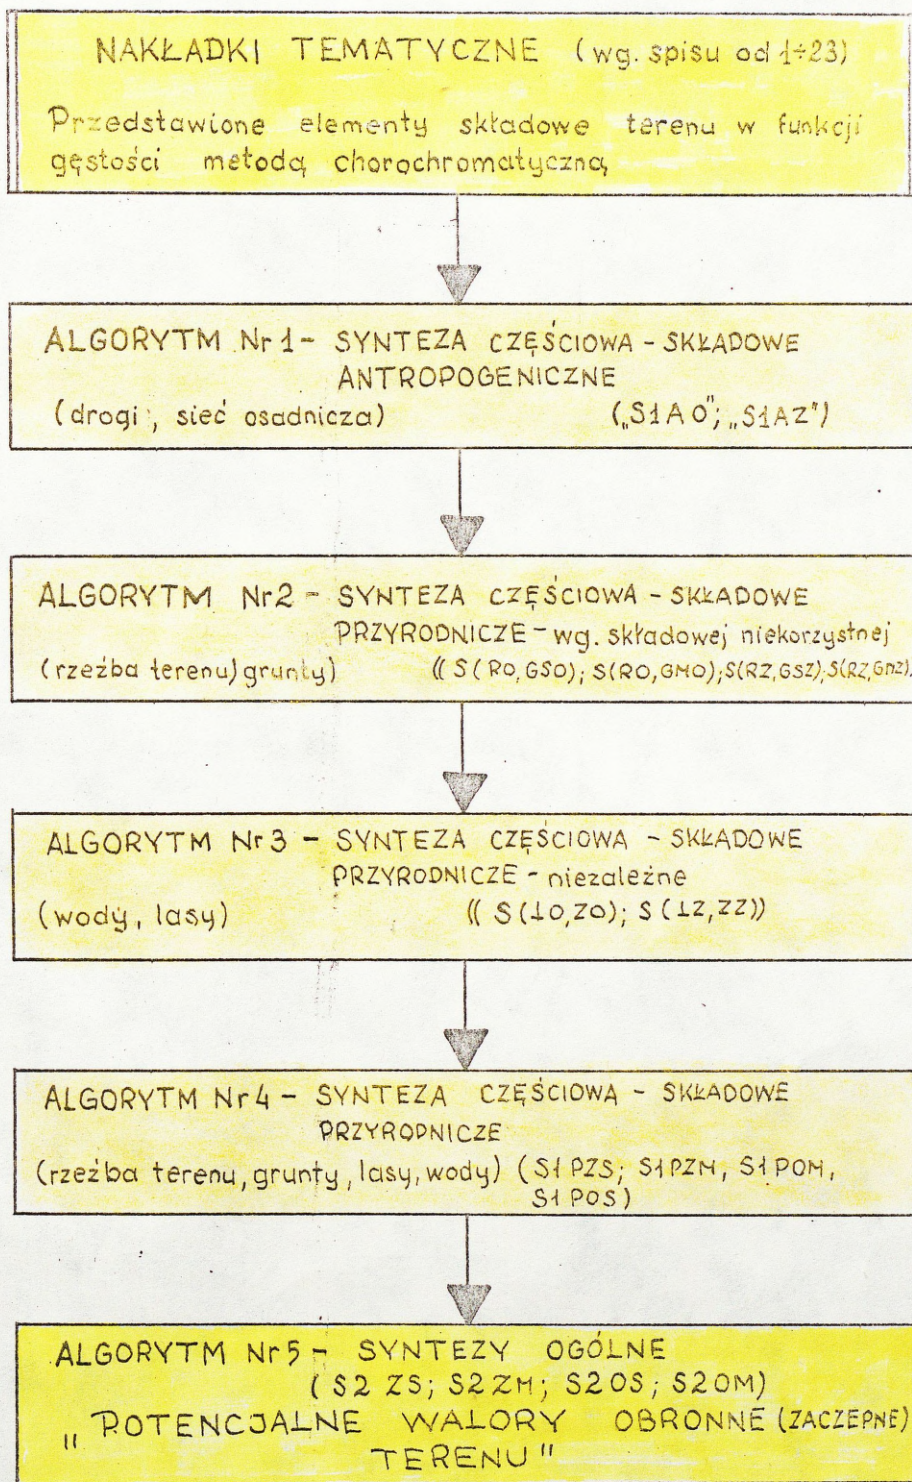 NAKŁADKI TEMATYCZNE (wg. spisu od 1÷23)
Przedstawione elementy składowe terenu w funkcji
gęstości metodą chorochromatyczną
ALGORYTM Nr 1 - SYNTEZA CZĘŚCIOWA - SKŁADOWE
ANTROPOGENICZNE
(drogi, sieć osadnicza) („S1AO"; „S1AZ")
ALGORYTM Nr2 - SYNTEZA CZĘŚCIOWA - SKŁADOWE
PRZYRODNICZE - wg. składowej niekorzystnej
(rzeźba terenu) grunty) (( S(RO,GSO); S(RO,GMO); S(RZ,GSZ); S(RZ,GMZ))
ALGORYTM Nr 3 - SYNTEZA CZĘŚCIOWA - SKŁADOWE
PRZYRODNICZE - niezależne
(wody, lasy) (( S(LO,ZO); S(LZ,ZZ))
ALGORYTM Nr 4 - SYNTEZA CZĘŚCIOWA - SKŁADOWE
PRZYRODNICZE
(rzeźba terenu, grunty, lasy, wody) (S1 PZS; S1PZM, S1 POM,
S1 POS)
ALGORYTM Nr 5 - SYNTEZY OGÓLNE
(S2 ZS; S2 ZM; S2OS; S2OM)
„POTENCJALNE WALORY OBRONNE (ZACZEPNE)
TERENU"